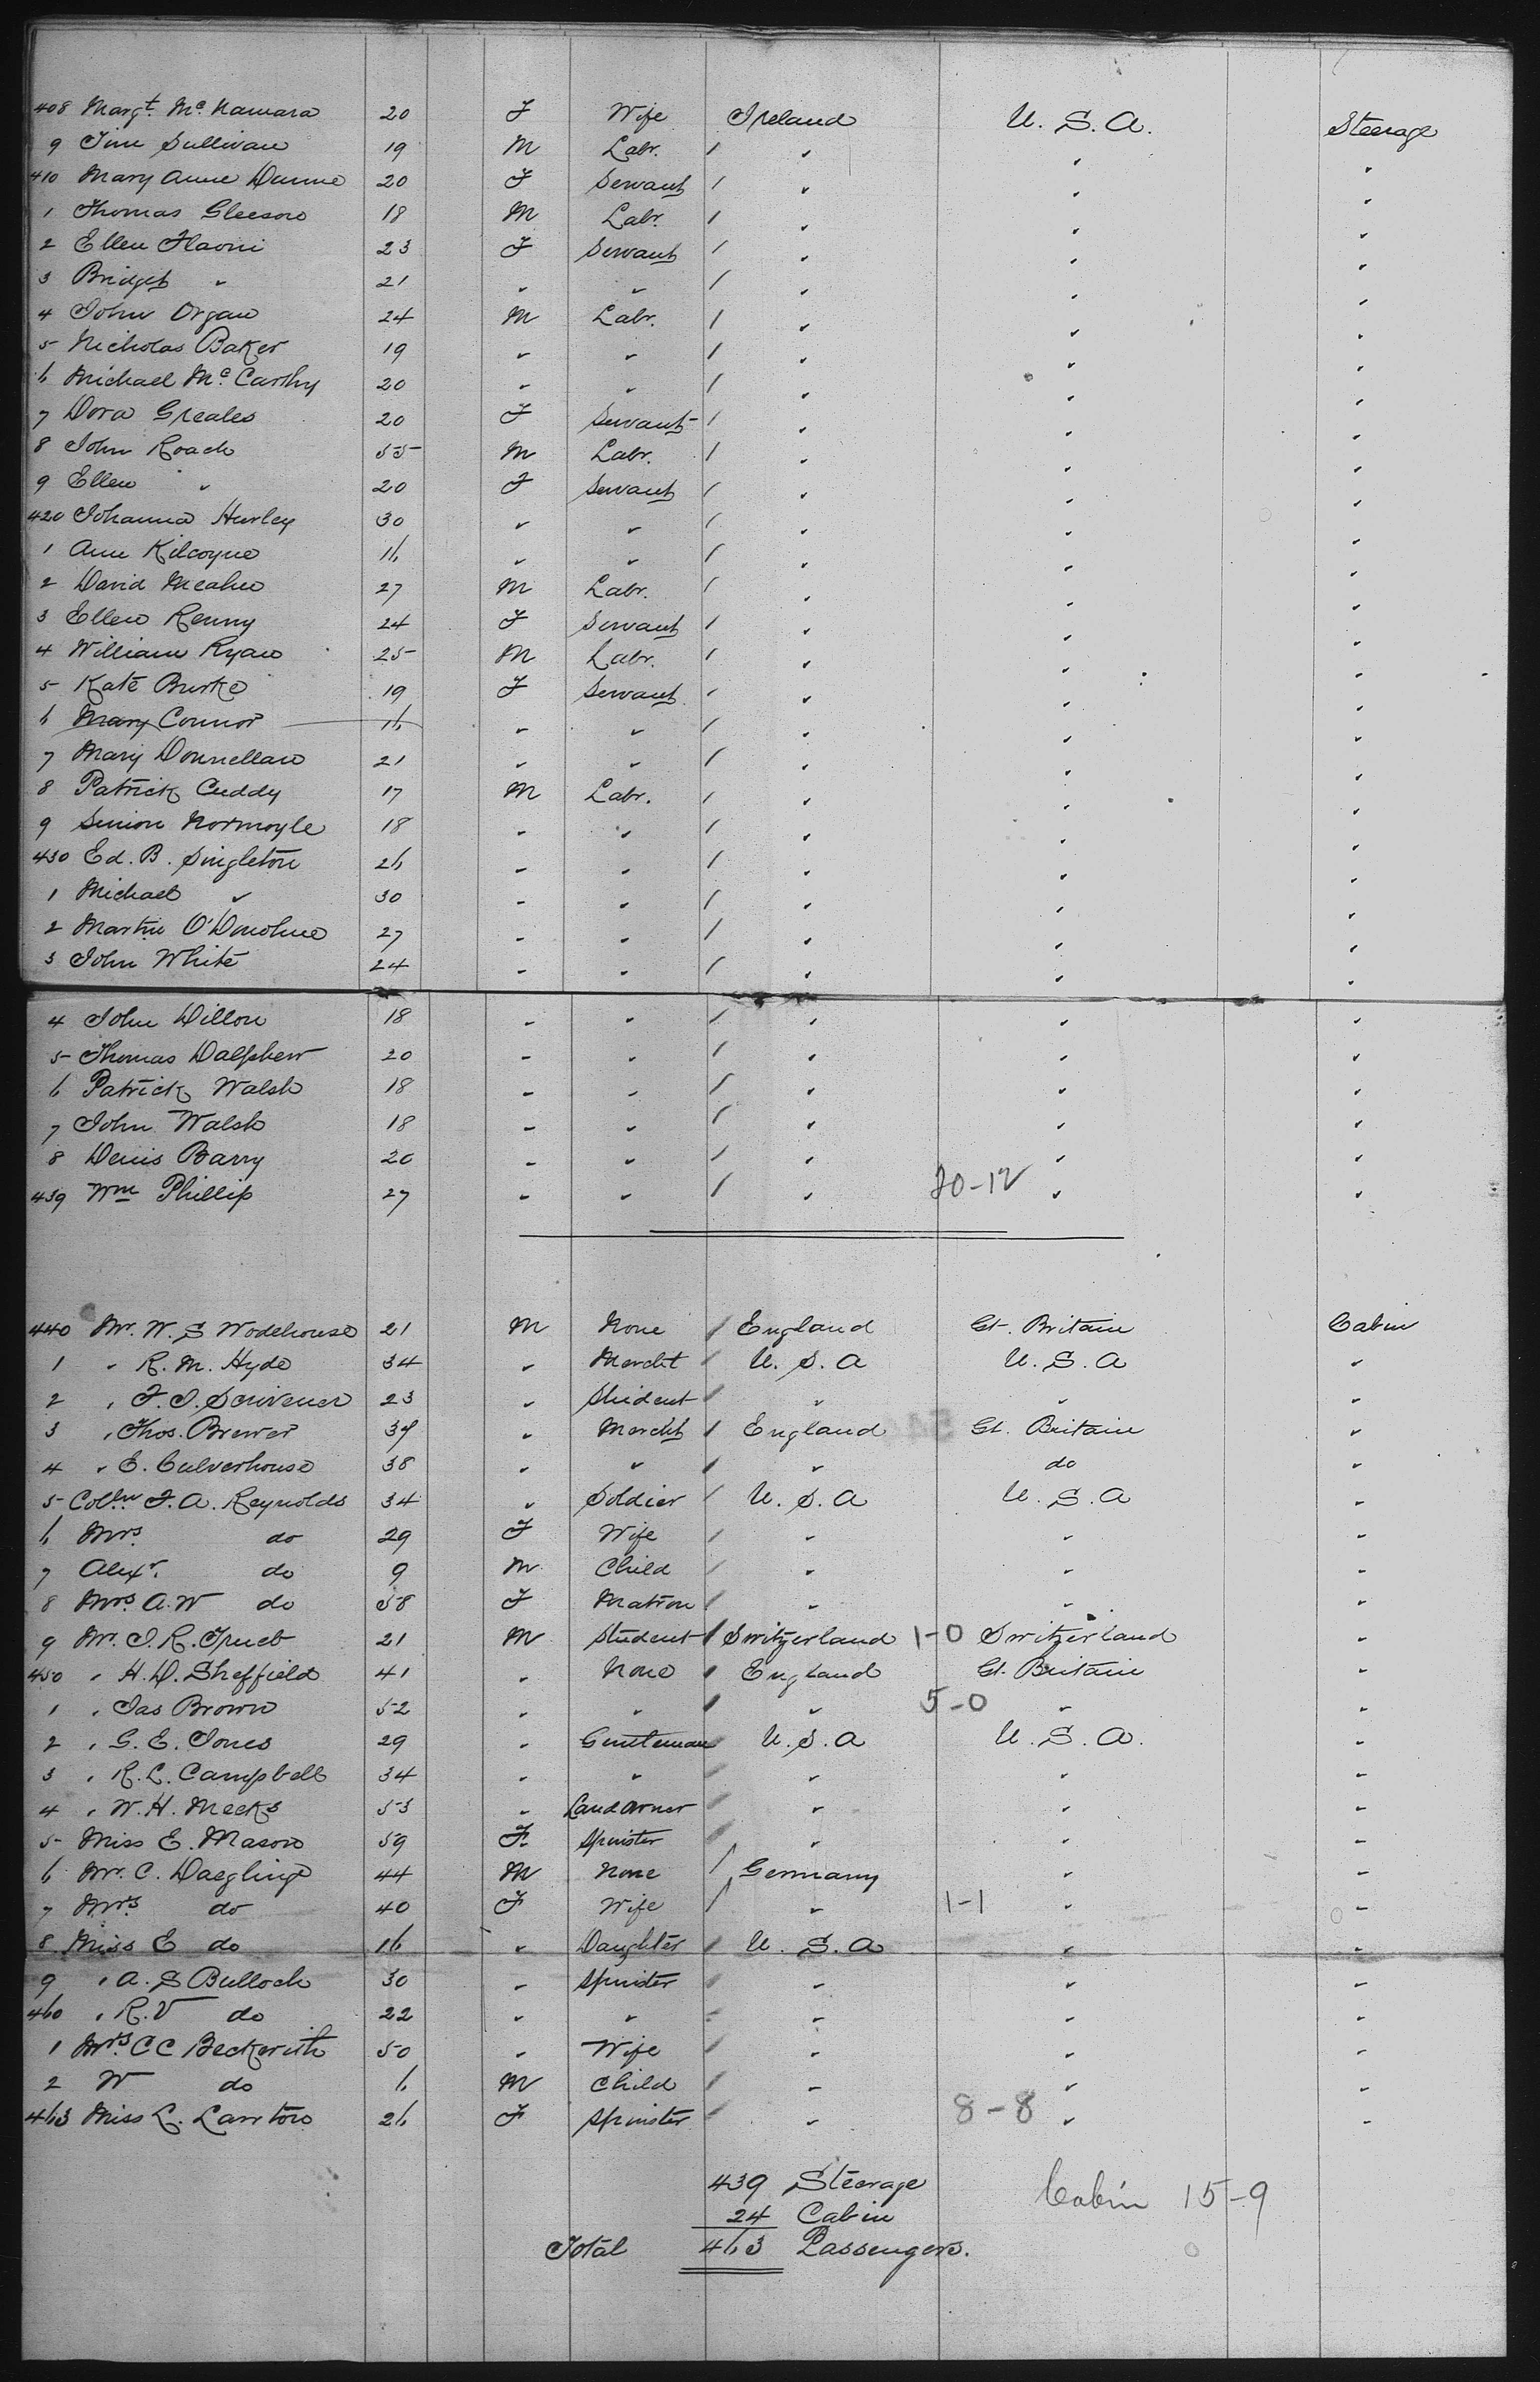 408 Margt. Mc. Namara 20 F Wife Ireland U. S. A. Steerage
9 Jim Sullivan 19 M Labr. / " " "
410 Mary Anne Dunne 20 F Servant / " " "
1 Thomas Gleeson 18 M Labr. / " " "
2 Ellen 23 F Servant / " " "
3 Bridget " 21 " " / " " "
4 John Organ 24 M Labr. / " " "
5 Nicholas Baker 19 " " / " " "
6 Michael Mc. Carthy 20 " " / " " "
7 Dora Greales 20 F Servant / " " "
8 John Roach 55 M Labr. / " " "
9 Ellen " 20 F Servant / " " "
420 Johanna Hurley 30 " " / " " "
1 Ann Kilcoyne 16 " " / " " "
2 David 27 M Labr. / " " "
3 Ellen Kenny 24 F Servant / " " "
4 William Ryan 25 M Labr. / " " "
5 Kate Burke 19 F Servant / " " "
6 Mary Connor 16 " " / " " "
7 Mary Donnellan 21 " " / " " "
8 Patrick Cuddy 17 M Labr. / " " "
9 Simon Normoyle 18 " " / " " "
430 Ed. B. Singleton 26 " " / " " "
1 Michael " 30 " " / " " "
2 Martin O'Donohue 27 " " / " " "
3 John White 24 " " / " " "
4 John Dillon 18 " " / " " "
5 Thomas 20 " " / " " "
6 Patrick Walsh 18 " " / " " "
7 John Walsh 18 " " / " " "
8 Denis Barry 20 " " / " " "
439 Wm Phillip 27 " " / " 20-12 " "
440 Mr. W. S Wodehouse 21 M None / England Gt. Britain Cabin
1 " R. M. Hyde 34 " Mercht / U. S. A U. S. A "
2 " F. J. Scrivener 23 " Student / " " "
3 " Thos. Brewer 39 " Mercht / England Gt. Britain "
4 " E. Culverhouse 38 " " / " do "
5 F. A. Reynolds 34 " Soldier / U. S. A U. S. A "
6 Mrs. do 29 F Wife / " " "
7 Alexr. do 9 M Child / " " "
8 Mrs. A. W do 58 F Matron / " " "
9 Mr. J. R. 21 M Student / Switzerland 1-0 Switzerland "
450 " H. D. Sheffield 41 " None / England Gt. Britain "
1 " Jas Brown 52 " " / " 5-0 " "
2 " G. E. Jones 29 " Gentleman / U. S. A U. S. A. "
3 " R. L. Campbell 34 " " / " " "
4 " W. H. Meeks 53 " Landowner / " " "
5 Miss E. Mason 59 F. Spinster / " " "
6 Mr. C. Daegling 44 M None / Germany " "
7 Mrs do 40 F Wife / " 1-1 " "
8 Miss E do 16 " Daughter / U. S. A " "
9 " A. S Bulloch 30 " Spinster / " " "
460 " R. V do 22 " " / " " "
1 Mrs. C C Beckwith 50 " Wife / " " "
2 W do 6 M Child / " " "
463 Miss L. Lawton 26 F Spinster / " 8-8 " "
439 Steerage
24 Cabin Cabin 15-9
Total 463 Passengers.